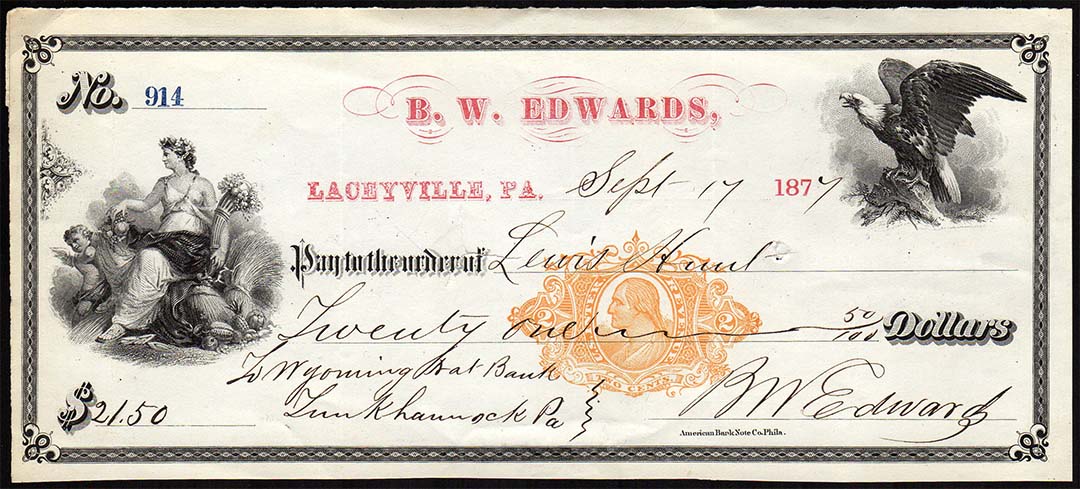 No. 914
B. W. EDWARDS,
LACEYVILLE, PA. Sept 17 1877
Pay to the order of Lewis Hunt
Twenty one 50/100 Dollars
To Wyoming Nat Bank
Tunkhannock Pa
$21.50
BW Edwards
UNITED STATES INTER REVENUE
2 2
TWO CENTS
American Bank Note Co. Phila.